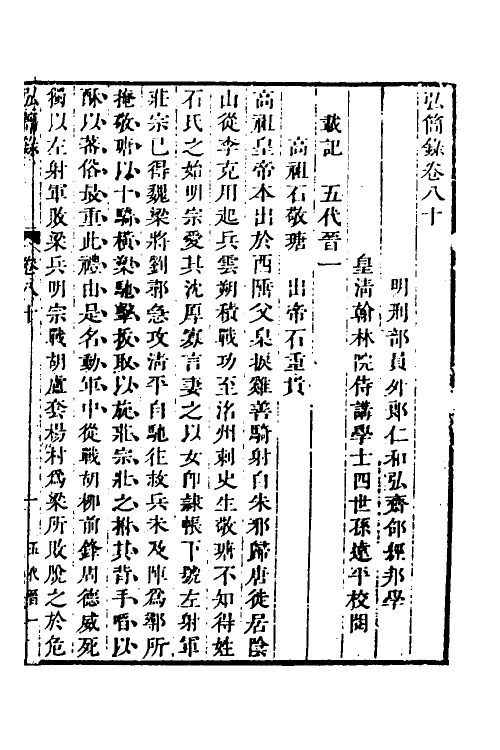 弘簡錄卷八十
明刑部員外郎仁和弘齋邵經邦學
皇清翰林院侍講學士四世孫遠平校閱
載記　五代晉一
高祖石敬瑭　出帝石重貴
高祖皇帝本出於西隅父臬捩雞善騎射自朱邪歸唐徙居陰
山從李克用起兵雲朔積戰功至洺州刺史生敬瑭不知得姓
石氏之始明宗愛其沈厚寡言妻之以女卽隸帳下號左射軍
莊宗巳得魏梁將劉鄩急攻清平自馳往救兵未及陣爲鄩所
掩敬瑭以十騎橫槊馳擊援取以旋莊宗壯之拊其背手啗以
酥以蕃俗最重此禮由是名動軍中從戰胡柳前鋒周德威死
獨以左射軍敗梁兵明宗戰胡盧套楊村爲梁所敗脫之於危
弘簡錄　卷八十　一　五代晉一